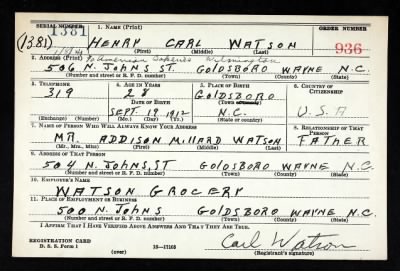 SERIAL NUMBER 1. NAME (Print) ORDER NUMBER
1381
(1381) HENRY CARL WATSON 936
(First) (Middle) (Last)
2. ADDRESS (Print) American Bakeries Wilmington
506 N. JOHNS ST. GOLDSBORO WAYNE N.C.
(Number and street or R. F. D. number) (Town) (County) (State)
3. TELEPHONE 4. AGE IN YEARS 5. PLACE OF BIRTH 6. COUNTRY OF CITIZENSHIP
319 28 GOLDSBORO
DATE OF BIRTH (Town or county)
SEPT. 19 1912 N.C. U.S.A
(Exchange) (Number) (Mo.) (Day) (Yr.) (State or country)
7. NAME OF PERSON WHO WILL ALWAYS KNOW YOUR ADDRESS 8. RELATIONSHIP OF THAT PERSON
MR. ADDISON MILLARD WATSON FATHER
(Mr., Mrs., Miss) (First) (Middle) (Last)
9. ADDRESS OF THAT PERSON
504 N. JOHNS, ST GOLDSBORO WAYNE N.C.
(Number and street or R. F. D. number) (Town) (County) (State)
10. EMPLOYER'S NAME
WATSON GROCERY
11. PLACE OF EMPLOYMENT OR BUSINESS
500 N. JOHNS GOLDSBORO WAYNE N.C.
(Number and street or R. F. D. number) (Town) (County) (State)
I AFFIRM THAT I HAVE VERIFIED ABOVE ANSWERS AND THAT THEY ARE TRUE.
REGISTRATION CARD
D. S. S. Form 1 16—17105 Carl Watson
(over) (Registrant's signature)